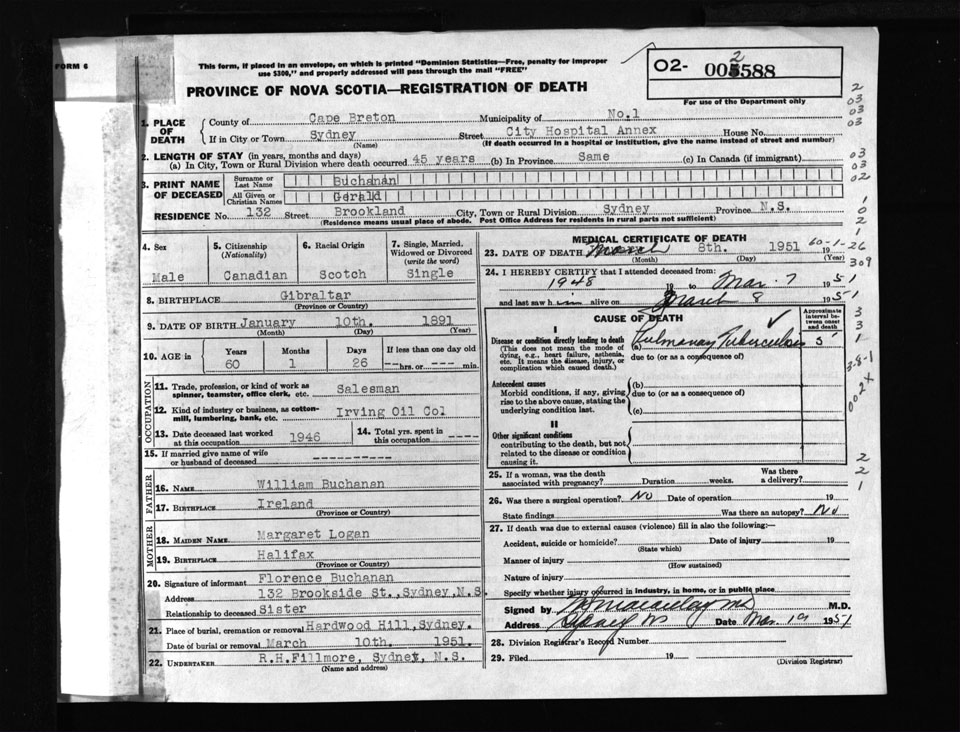 FORM 6
This form, if placed in an envelope, on which is printed "Dominion Statistics—Free, penalty for improper
use $300," and properly addressed will pass through the mail "FREE"
PROVINCE OF NOVA SCOTIA—REGISTRATION OF DEATH
02- 005588
2
For use of the Department only
1. PLACE OF DEATH
County of Cape Breton Municipality of No.1
If in City or Town Sydney Street City Hospital Annex House No.
(Name) (If death occurred in a hospital or institution, give the name instead of street and number)
2. LENGTH OF STAY (in years, months and days)
(a) In City, Town or Rural Division where death occurred 45 years (b) In Province Same (c) In Canada (if immigrant)
3. PRINT NAME OF DECEASED
Surname or Last Name Buchanan
All Given or Christian Names Gerald
RESIDENCE No. 132 Street Brookland City, Town or Rural Division Sydney Province N.S.
(Residence means usual place of abode. Post Office Address for residents in rural parts not sufficient)
4. Sex Male
5. Citizenship (Nationality) Canadian
6. Racial Origin Scotch
7. Single, Married, Widowed or Divorced (write the word) Single
8. BIRTHPLACE Gibraltar
(Province or Country)
9. DATE OF BIRTH January 10th. 1891
(Month) (Day) (Year)
10. AGE in Years 60 Months 1 Days 26 If less than one day old --hrs. or -- min.
OCCUPATION
11. Trade, profession, or kind of work as spinner, teamster, office clerk, etc. Salesman
12. Kind of industry or business, as cotton-mill, lumbering, bank, etc. Irving Oil Col
13. Date deceased last worked at this occupation 1946
14. Total yrs. spent in this occupation ----
15. If married give name of wife or husband of deceased ---------
FATHER
16. NAME William Buchanan
17. BIRTHPLACE Ireland
(Province or Country)
MOTHER
18. MAIDEN NAME Margaret Logan
19. BIRTHPLACE Halifax
(Province or Country)
20. Signature of informant Florence Buchanan
Address 132 Brookside St., Sydney, N.S.
Relationship to deceased Sister
21. Place of burial, cremation or removal Hardwood Hill, Sydney.
Date of burial or removal March 10th. 1951.
22. UNDERTAKER R.H.Fillmore, Sydney, N.S.
(Name and address)
MEDICAL CERTIFICATE OF DEATH
23. DATE OF DEATH March 8th. 1951 19
(Month) (Day) (Year)
60-1-26
309
24. I HEREBY CERTIFY that I attended deceased from:
1948 19 to Mar. 7 1951
and last saw him alive on March 8 1951
CAUSE OF DEATH
Approximate interval between onset and death
I
Disease or condition directly leading to death
(This does not mean the mode of dying, e.g., heart failure, asthenia, etc. It means the disease, injury, or complication which caused death.)
(a) Pulmonary Tuberculosis 5
due to (or as a consequence of)
Antecedent causes
Morbid conditions, if any, giving rise to the above cause, stating the underlying condition last.
(b)
due to (or as a consequence of)
(c)
II
Other significant conditions
contributing to the death, but not related to the disease or condition causing it.
25. If a woman, was the death associated with pregnancy? Duration weeks. Was there a delivery?
26. Was there a surgical operation? No Date of operation 19
State findings Was there an autopsy? No
27. If death was due to external causes (violence) fill in also the following:—
Accident, suicide or homicide? Date of injury 19
(State which)
Manner of injury
(How sustained)
Nature of injury
Specify whether injury occurred in industry, in home, or in public place
Signed by M.D.
Address Sydney NS Date Mar. 19 1951
28. Division Registrar's Record Number
29. Filed 19
(Division Registrar)
2
03
03
03
03
03
02
1
0
2
1
3
3
1
3-8-1
2
2
1